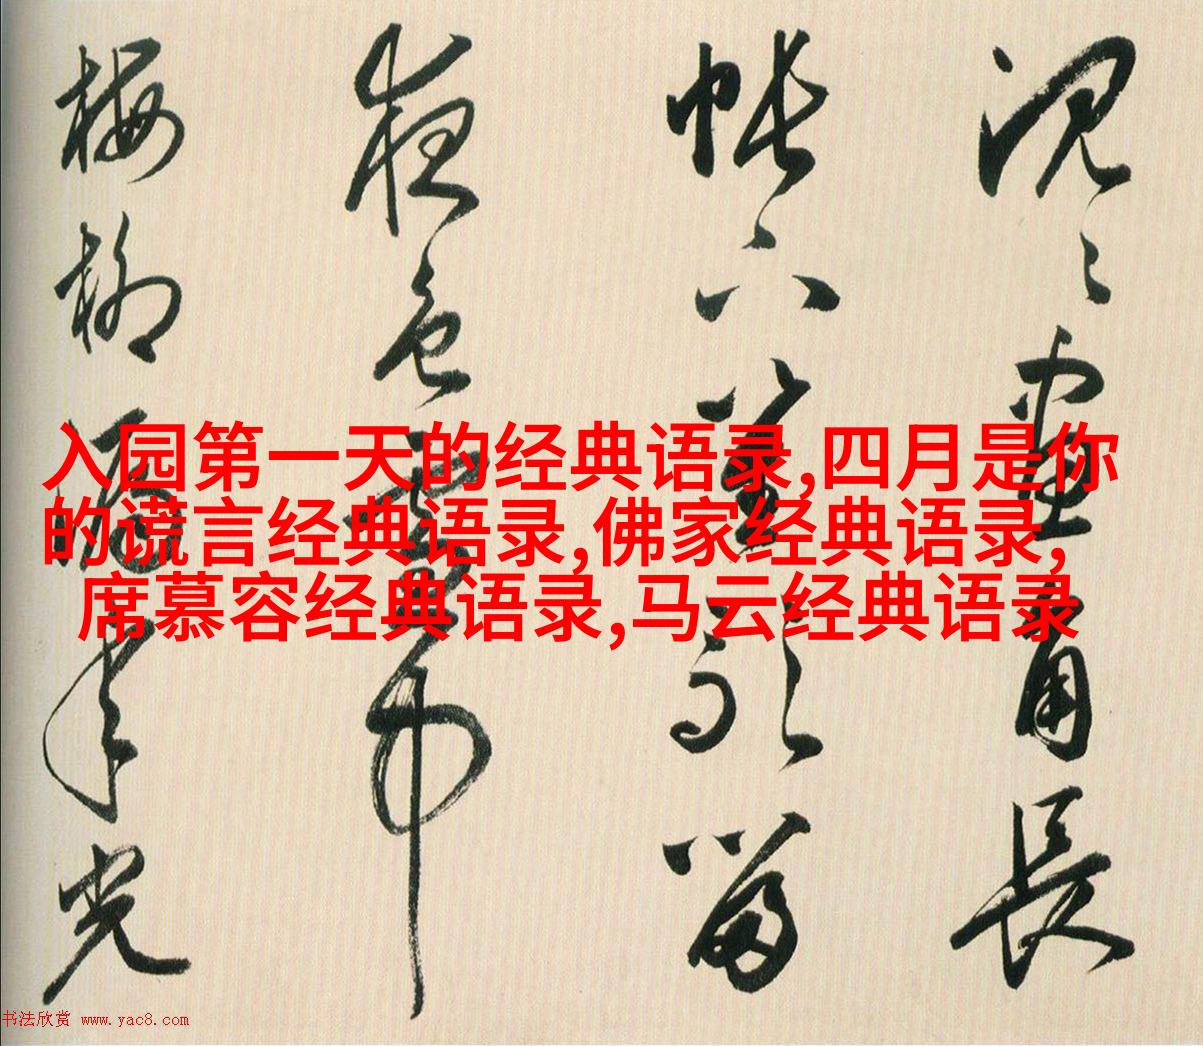 入园第一天的经典语录,四月是你
的谎言经典语录,佛家经典语录,
席慕容经典语录,马云经典语录
長
帳六 留
夜色
梅柳 年光
书法欣赏 www.yac8.com